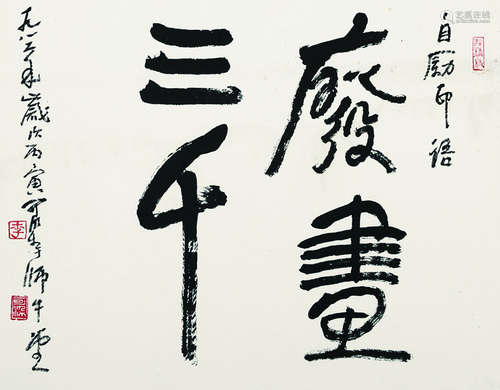 自勵印語
廢畫
三千
一九八六年歲次丙寅可染于師牛堂
李